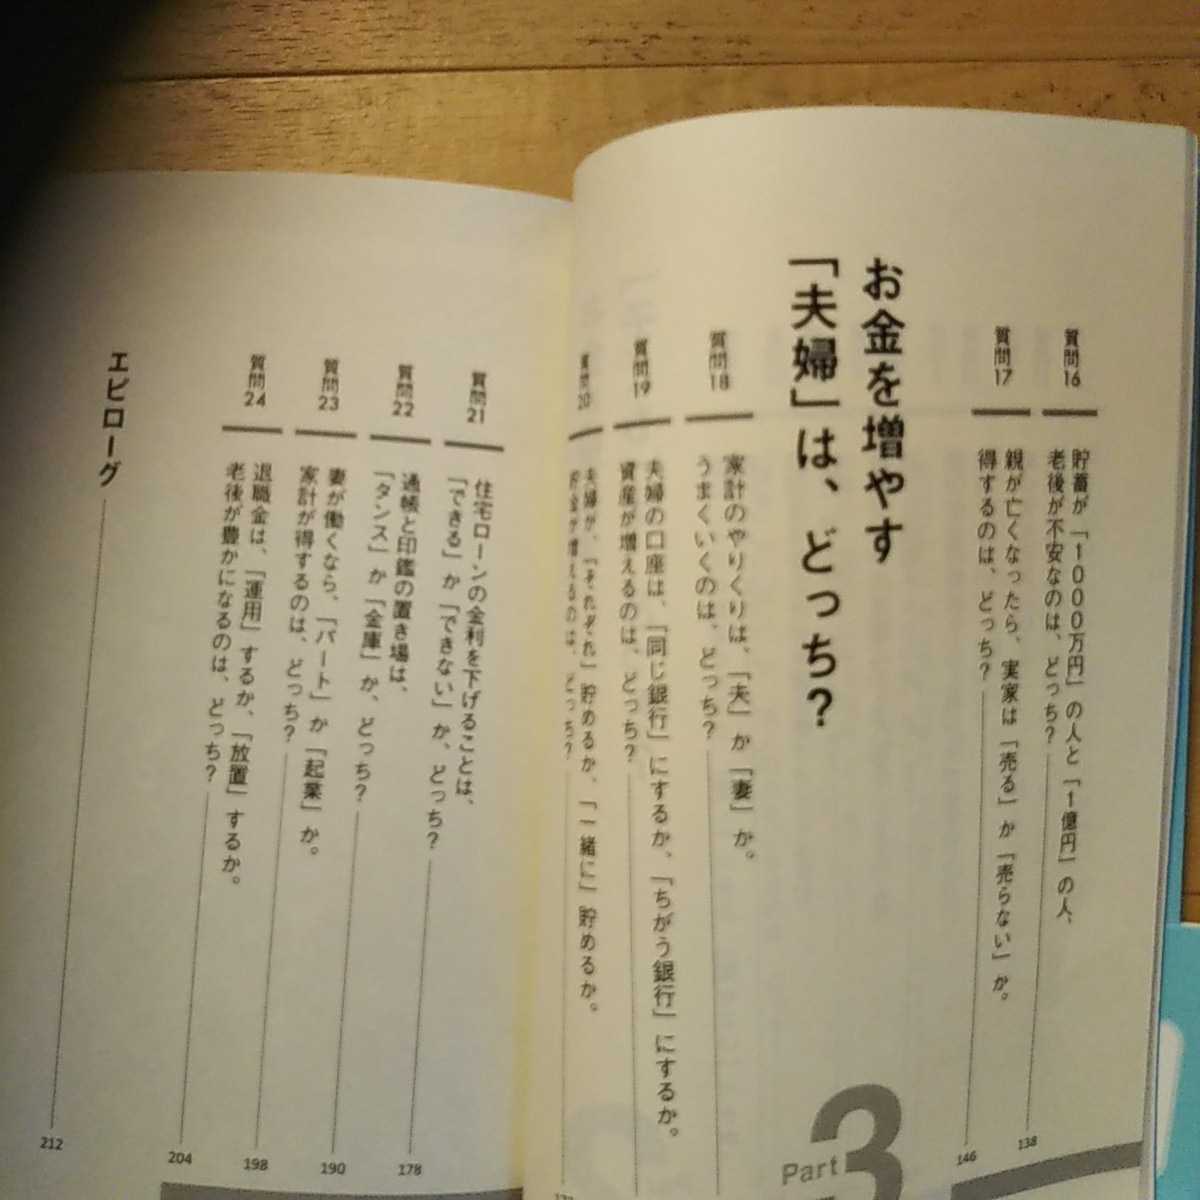 質問16
貯蓄が「1000万円」の人と「1億円」の人、
老後が不安なのは、どっち?
138
質問17
親が亡くなったら、実家は「売る」か「売らない」か。
得するのは、どっち?
146
Part 3
お金を増やす
「夫婦」は、どっち?
質問18
家計のやりくりは、「夫」か「妻」か。
うまくいくのは、どっち?
質問19
夫婦の口座は、「同じ銀行」にするか、「ちがう銀行」にするか。
資産が増えるのは、どっち?
質問20
夫婦が、「それぞれ」貯めるか、「一緒に」貯めるか。
貯金が増えるのは、どっち?
質問21
住宅ローンの金利を下げることは、
「できる」か「できない」か、どっち?
178
質問22
通帳と印鑑の置き場は、
「タンス」か「金庫」か、どっち?
190
質問23
妻が働くなら、「パート」か「起業」か。
家計が得するのは、どっち?
198
質問24
退職金は、「運用」するか、「放置」するか。
老後が豊かになるのは、どっち?
204
エピローグ
212